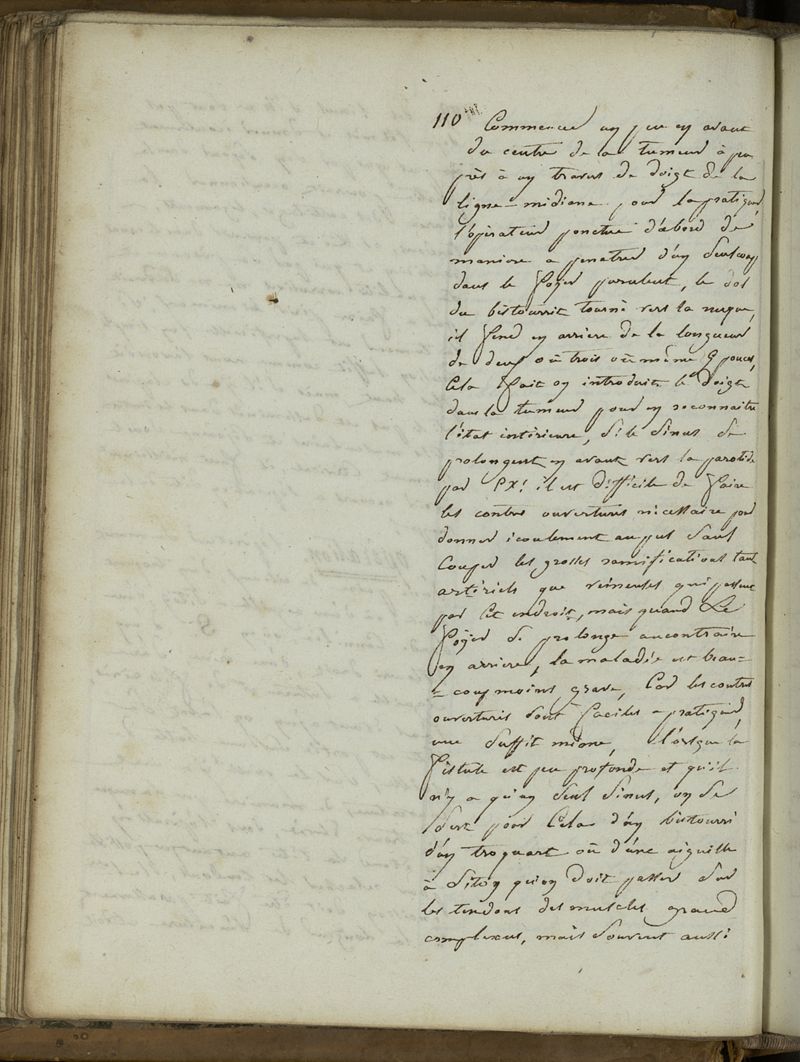 110 Commencer un peu en avant
du centre de la tumeur à peu
près à un travers de doigt de la
ligne-midiane pour la pratiquer,
l'opérateur ponctue d'abord de
maniere a penetrer d'un seul coup
dans le foyer purulent, le dos
du bistourrit tourné vers la nuque,
il fend en arriere de la longueur
de deux où trois où même 4 pouces,
Cela fait on introduit le doigt
dans la tumeur pour en reconnaitre
l'état intérieure, Si le Sinus Se
prolongent en avant vers la parotide
par Ex! il est difficile de faire
les contres ouvertures nécessaire pour
donner écoulement au pus Sans
Couper les grosses ramifications tant
artériels que veineuses qui passent
par Cet endroit, mais quand Le
foyer Se prolonge aucontraire
en arriere, la maladie est beau=
=coup moins grave, Car les contres
ouvertures Sont faciles a pratiquer,
une Suffit même, l'orsque la
fistule est peu profonde et qu'il
n'y a qu'un Seul Sinus, on Se
Sert pour Cela d'un bistourri
d'un troquart où d'une aiguille
à Séton qu'on doit passer Sur
les tendons des muscles grand
complexus, mais Souvent aussi